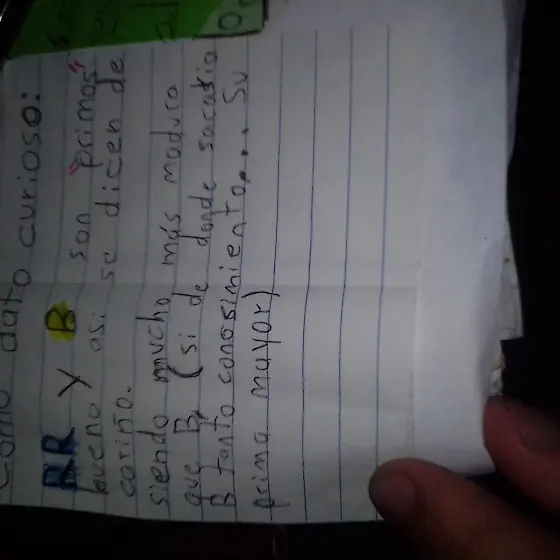 como dato curioso:
BR y B son "primos"
bueno asi se dicen de
cariño.
siendo mucho más madura
que B, (si de donde sacaria
B tanto conosimiento,... Su
prima mayor)